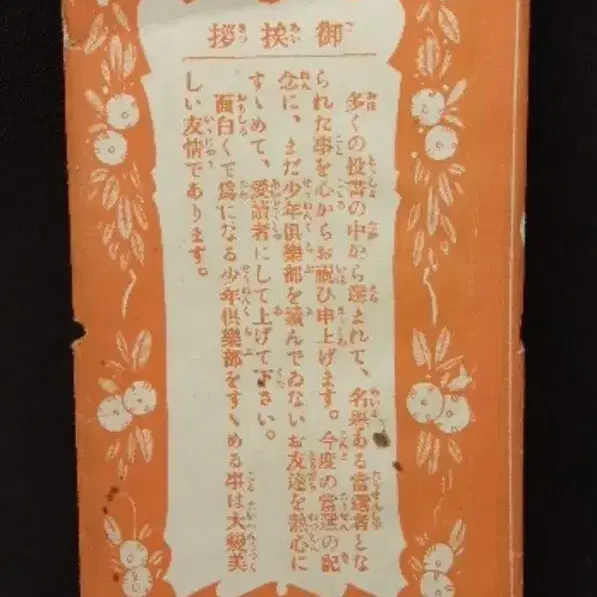 御挨拶
多くの投書の中から選まれて、名譽ある當選者とな
られた事を心からお祝ひ申上げます。今度の當選の記
念に、まだ少年倶樂部を讀んでゐないお友達を熱心に
すゝめて、愛讀者にして上げて下さい。
面白くて爲になる少年倶樂部をすゝめる事は大變美
しい友情であります。